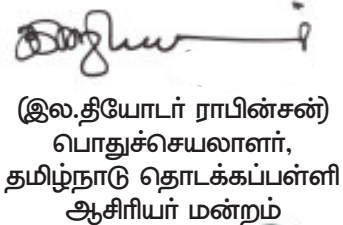 (இல.தியோடர் ராபின்சன்)
பொதுச்செயலாளர்,
தமிழ்நாடு தொடக்கப்பள்ளி
ஆசிரியர் மன்றம்